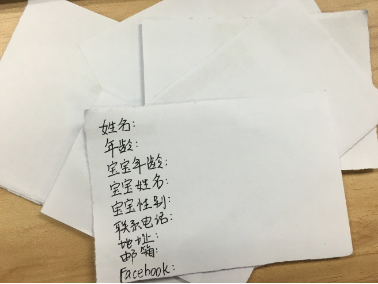 姓名:
年龄:
宝宝年龄:
宝宝姓名:
宝宝性别:
联系电话:
地址:
邮箱:
Facebook: